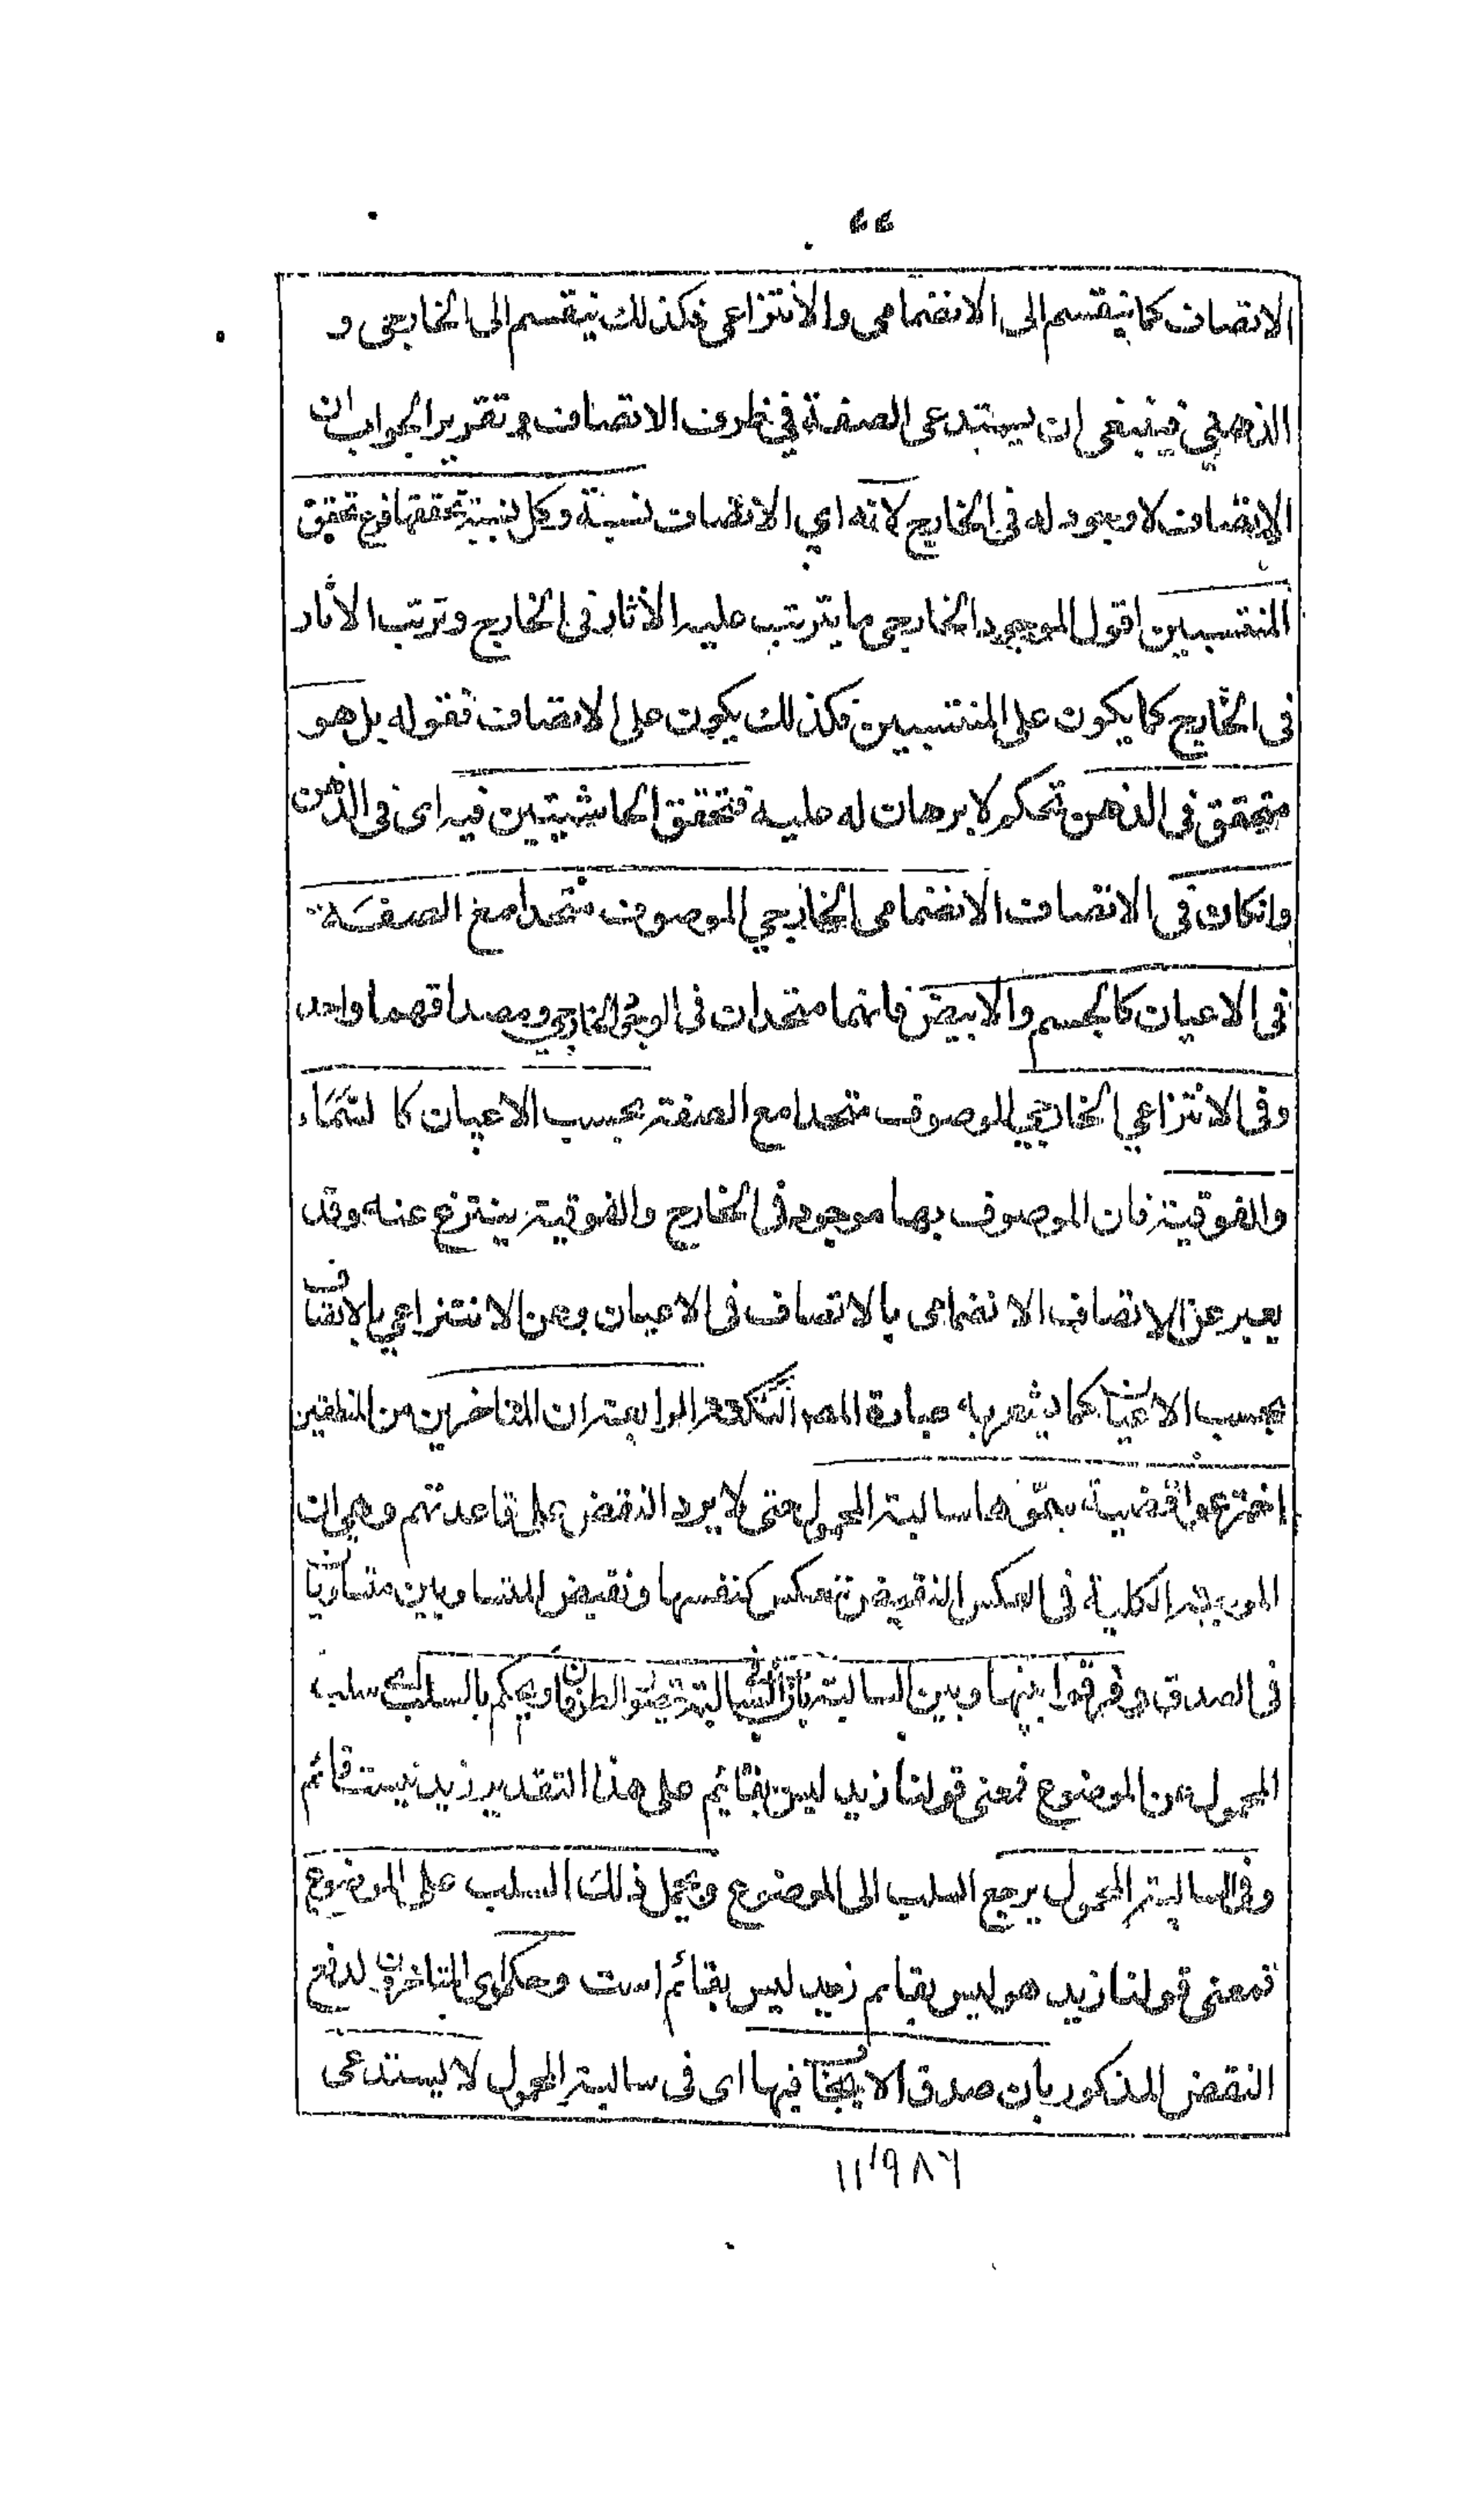 الاتصاف كما ينقسم الى الانضمامى والانتزاعى فكذلك ينقسم الى الخارجى و
الذهني فينبغى ان يستدعى الصفة في ظرف الاتصاف وتقرير الجواب ان
الاتصاف لا وجود له فى الخارج لانه اي الاتصاف نسبة وكل نسبة تحققها فرع تحقق
المنتسبين اقول الموجود الخارجى ما يترتب عليه الأثار فى الخارج وترتب الأثار
فى الخارج كما يكون على المنتسبين فكذلك يكون على الاتصاف فقوله بل هو
متحقق فى الذهن تحكم لا برهان له عليه فتحقق الحاشيتين فيه اى فى الذهن
وانكان فى الاتصاف الانضمامى الخارجي الموصوف متحدا مع الصفة
فى الاعيان كالجسم والابيض فانهما متحدان فى الوجود الخارجي ومصداقهما واحد
وفى الانتزاعي الخارجي الموصوف متحدا مع الصفة بحسب الاعيان كالسماء
والفوقية فان الموصوف بها موجود فى الخارج والفوقية ينتزع عنه وقد
يعبر عن الاتصاف الانضمامى بالاتصاف فى الاعيان وعن الانتزاعي بالاتصاف
بحسب الاعيان كما يشعر به عبارة المصـ النكتة الرابعة ان المتاخرين من المنطقين
اخترعوا قضية سموها سالبة المحمول حتى لا يرد النقض على قاعدتهم وهي ان
الموجبة الكلية فى العكس النقيض تنعكس كنفسها ونقيض المتساويين متساويا
فى الصدق وفرقوا بينها وبين السالبة بان فى السالبة يتصور الطرفان ويحكم بالسلب سلب
المحمول عن الموضوع فمعنى قولنا زيد ليس بقائم على هذا التقدير زيد نيست قائم
وفى السالبة المحمول يرجع السلب الى الموضوع ويحمل ذلك السلب على الموضوع
فمعنى قولنا زيد هو ليس بقايم زيد ليس بقائم است وحكموا اي المتاخرون لدفع
النقض المذكور بان صدق الايجاب فيها اى فى سالبة المحمول لا يستدعى
۱۱٬۹۸۶